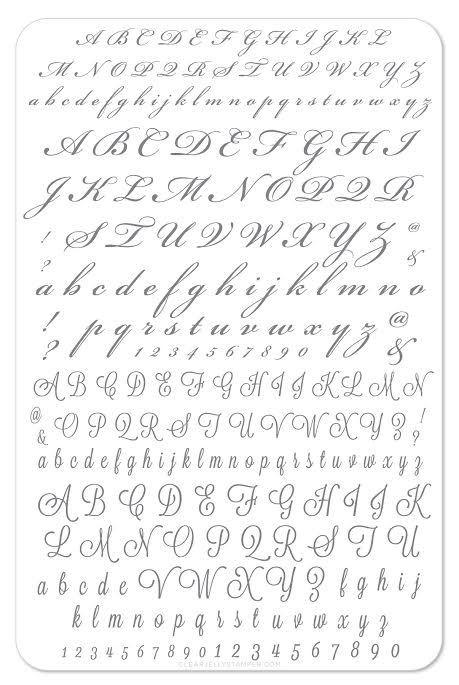 A B C D E F G H I J K L
M N O P Q R S T U V W X Y Z
a b c d e f g h i j k l m n o p q r s t u v w x y z
A B C D E F G H I
J K L M N O P Q R
! ? S T U V W X Y Z @ &
a b c d e f g h i j k l m n o
! ? p q r s t u v w x y z @ &
1 2 3 4 5 6 7 8 9 0
A B C D E F G H I J K L M N
@ & O P Q R S T U V W X Y Z ! ?
a b c d e f g h i j k l m n o p q r s t u v w x y z
A B C D E F G H I J K
L M N O P Q R S T U
a b c d e V W X Y Z f g h i j
k l m n o p q r s t u v w x y z
1 2 3 4 5 6 7 8 9 0 1 2 3 4 5 6 7 8 9 0
CLEARJELLYSTAMPER.COM